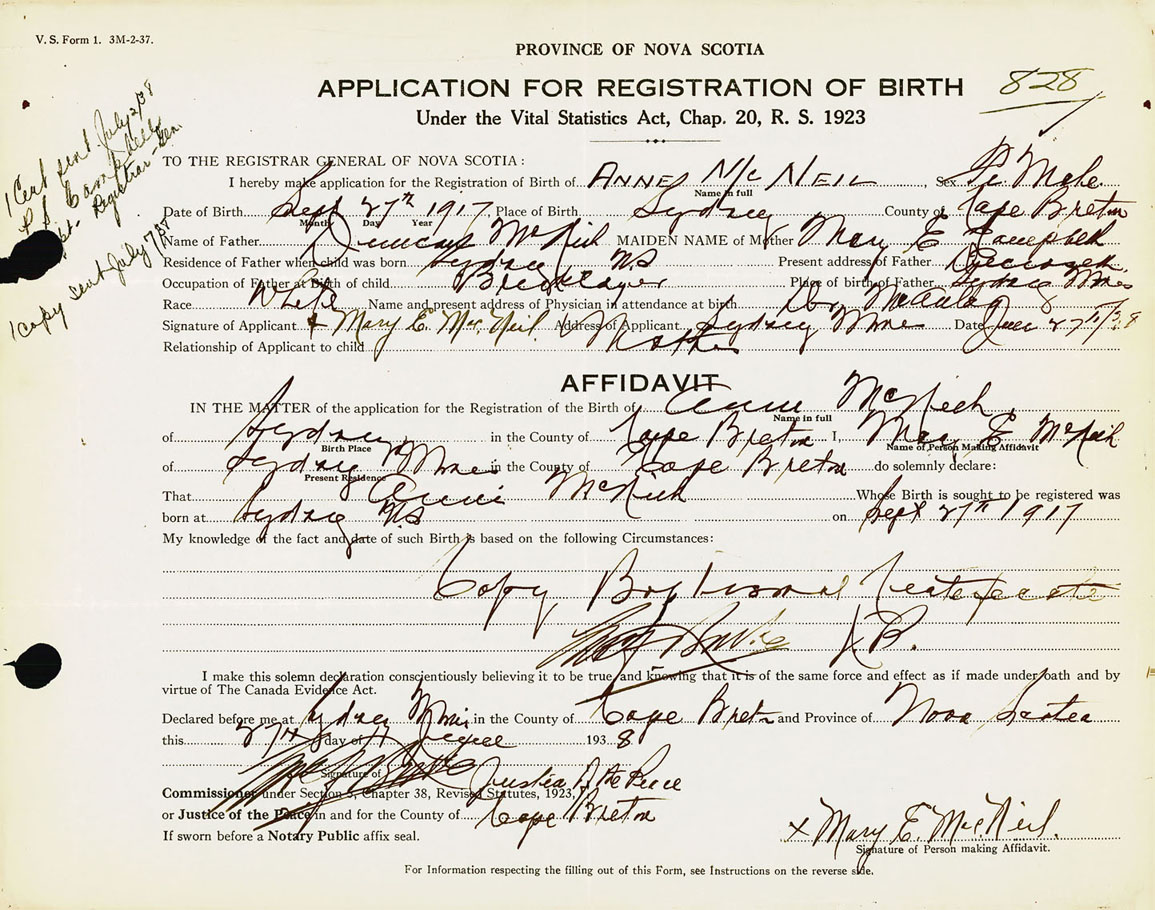 V. S. Form 1. 3M-2-37.
PROVINCE OF NOVA SCOTIA
APPLICATION FOR REGISTRATION OF BIRTH
828
Under the Vital Statistics Act, Chap. 20, R. S. 1923
1 Cert sent July 2/38
Registrar-Gen.
1 Copy sent July 7/38
TO THE REGISTRAR GENERAL OF NOVA SCOTIA:
I hereby make application for the Registration of Birth of ANNE Mc NEIL, Sex Fe Male.
Name in full
Date of Birth Sept 27th 1917 Place of Birth Sydney County of Cape Breton
Month Day Year
Name of Father Duncan McNeil MAIDEN NAME of Mother Mary E Campbell
Residence of Father when child was born Sydney NS Present address of Father Deceased
Occupation of Father at Birth of child Bricklayer Place of birth of Father Sydney Mines
Race White Name and present address of Physician in attendance at birth Dr McAulay
Signature of Applicant x Mary E. Mc.Neil. Address of Applicant Sydney Mines Date June 27th/38
Relationship of Applicant to child Mother
AFFIDAVIT
IN THE MATTER of the application for the Registration of the Birth of Annie McNeil
Name in full
of Sydney in the County of Cape Breton I, Mary E McNeil
Birth Place Name of Person Making Affidavit
of Sydney Mines in the County of Cape Breton do solemnly declare:
Present Residence
That Annie McNeil Whose Birth is sought to be registered was
born at Sydney NS on Sept 27th 1917
My knowledge of the fact and date of such Birth is based on the following Circumstances:
Copy Baptismal Certificate
I make this solemn declaration conscientiously believing it to be true and knowing that it is of the same force and effect as if made under oath and by
virtue of The Canada Evidence Act.
Declared before me at Sydney Mines in the County of Cape Breton and Province of Nova Scotia
this 27th day of June 1938
Signature of Justice of the Peace
Commissioner under Section 5, Chapter 38, Revised Statutes, 1923,
or Justice of the Place in and for the County of Cape Breton
If sworn before a Notary Public affix seal.
x Mary E. MacNeil.
Signature of Person making Affidavit.
For Information respecting the filling out of this Form, see Instructions on the reverse side.